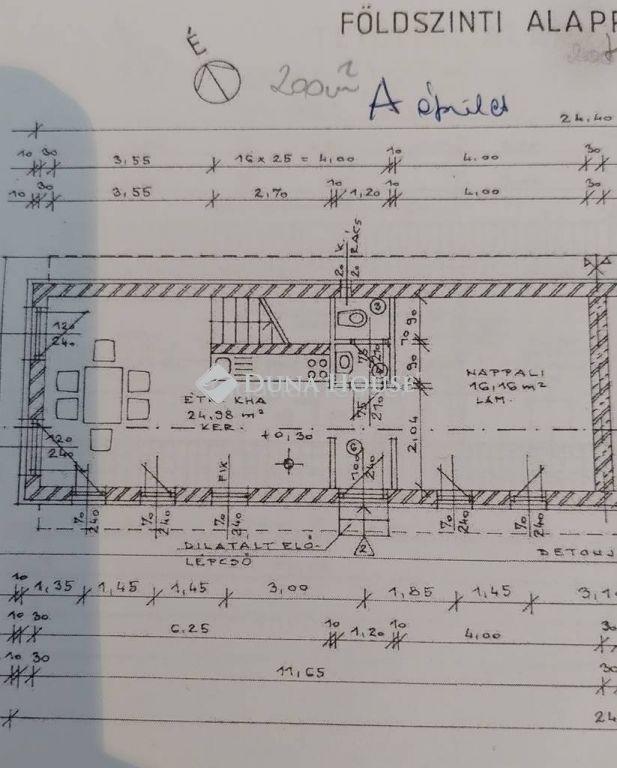 FÖLDSZINTI ALAPR
É
200m²
A épület
24.40
10 30 3,55 16 x 25 = 4,00 10 4.00 30
10 30 3,55 2,70 10 1,20 10 4,00 30
20 20 K. RÁCS
120 240
70 90
75 210
90
NAPPALI
16,16 m²
LAM.
DUNA HOUSE
ÉTK
KHA
24,98 m²
KER.
75 210
+0,30
2,04
120 240
FIX
100 240
70 240
70 240
70 240
70 240
70 240
DILATÁLT ELŐ-
LÉPCSŐ
2
10 1,35 1,45 1,45 3,00 1,85 1,45 3,1
10 30 6.25 10 1,20 10 4,00 30
10 30 11,65 30
24